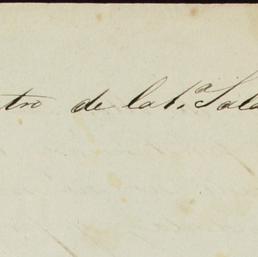 tro de la 1.ª Sala